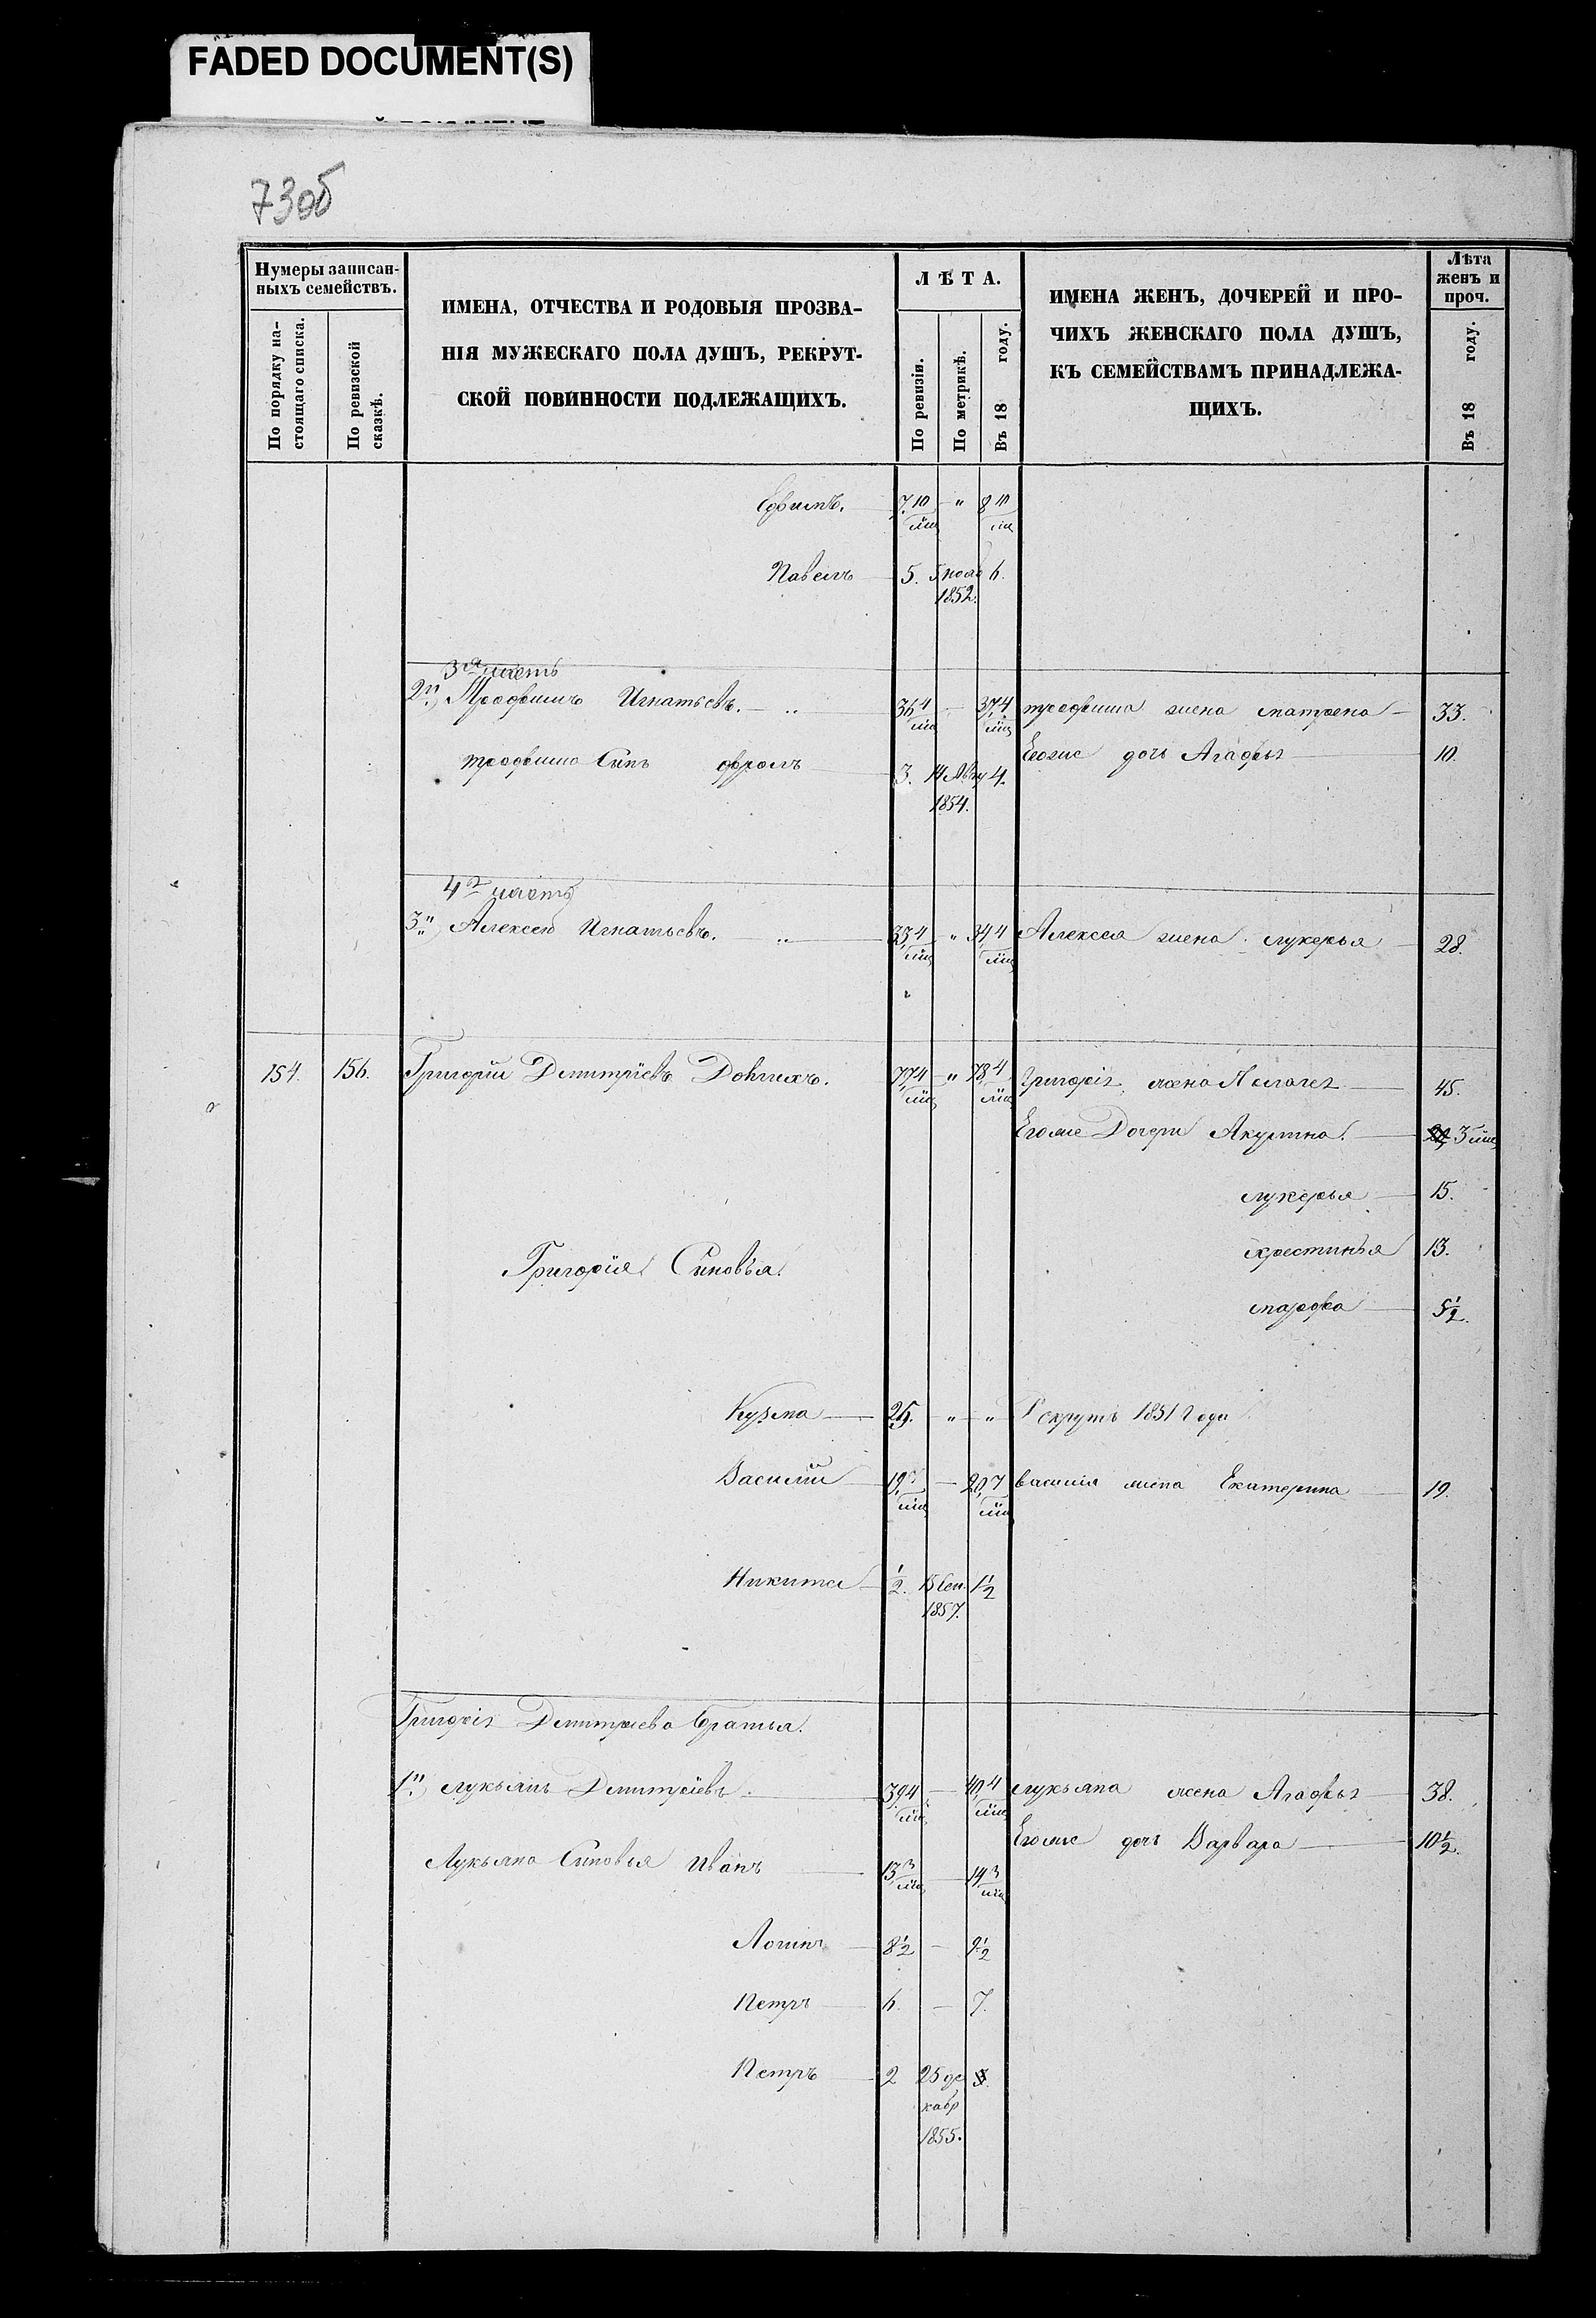 FADED DOCUMENT(S)
73об
Нумеры записан-
ныхъ семействъ.
По порядку на-
стоящаго списка.
По ревизской
сказкѣ.
ИМЕНА, ОТЧЕСТВА И РОДОВЫЯ ПРОЗВА-
НІЯ МУЖЕСКАГО ПОЛА ДУШЪ, РЕКРУТ-
СКОЙ ПОВИННОСТИ ПОДЛЕЖАЩИХЪ.
ЛѢТА.
По ревизіи.
По метрикѣ.
Въ 18 году.
ИМЕНА ЖЕНЪ, ДОЧЕРЕЙ И ПРО-
ЧИХЪ ЖЕНСКАГО ПОЛА ДУШЪ,
КЪ СЕМЕЙСТВАМЪ ПРИНАДЛЕЖА-
ЩИХЪ.
Лѣта
женъ и
проч.
Въ 18 году.
Ефимъ. 7 10/мц " 8 10/мц
Павелъ 5. 5 нояб 1852. 6.
3я часть
2") Трофимъ Игнатьевъ. 36 4/мц 37 4/мц трофима жена матрена 33.
трофима Сынъ фролъ 3. 14 Авгу 1854. 4. Егоже дочь Агафья 10.
4я часть
3") Алексей Игнатьевъ. 33 4/мц " 34 4/мц Алексея жена лукерья 28.
154. 156. Григорій Дмитріевъ Долгихъ. 77 4/мц " 78 4/мц Григорія жена Пелагея 45.
Егоже Дочери Акулина 3 мц
лукерья 15.
Григорія Сыновья
хрестинья 13.
марфа 5 1/2.
Кузма 25. " " Рекрутъ 1851 Года
Василій 19 7/мц 20 7/мц василія жена Екатерина 19.
Никита 1/2. 15 Сен. 1857. 1 1/2
Григорія Дмитріева братья.
1") лукьянъ Дмитріевъ. 39 4/мц 40 4/мц лукьяна жена Агафья 38.
Егоже дочь Варвара 10 1/2.
Лукьяна Сыновья Иванъ 13 3/мц 14 3/мц
Логинъ 8 1/2 9 1/2
Петръ 6. 7.
Петръ 2 25 де кабр 1855. 3.